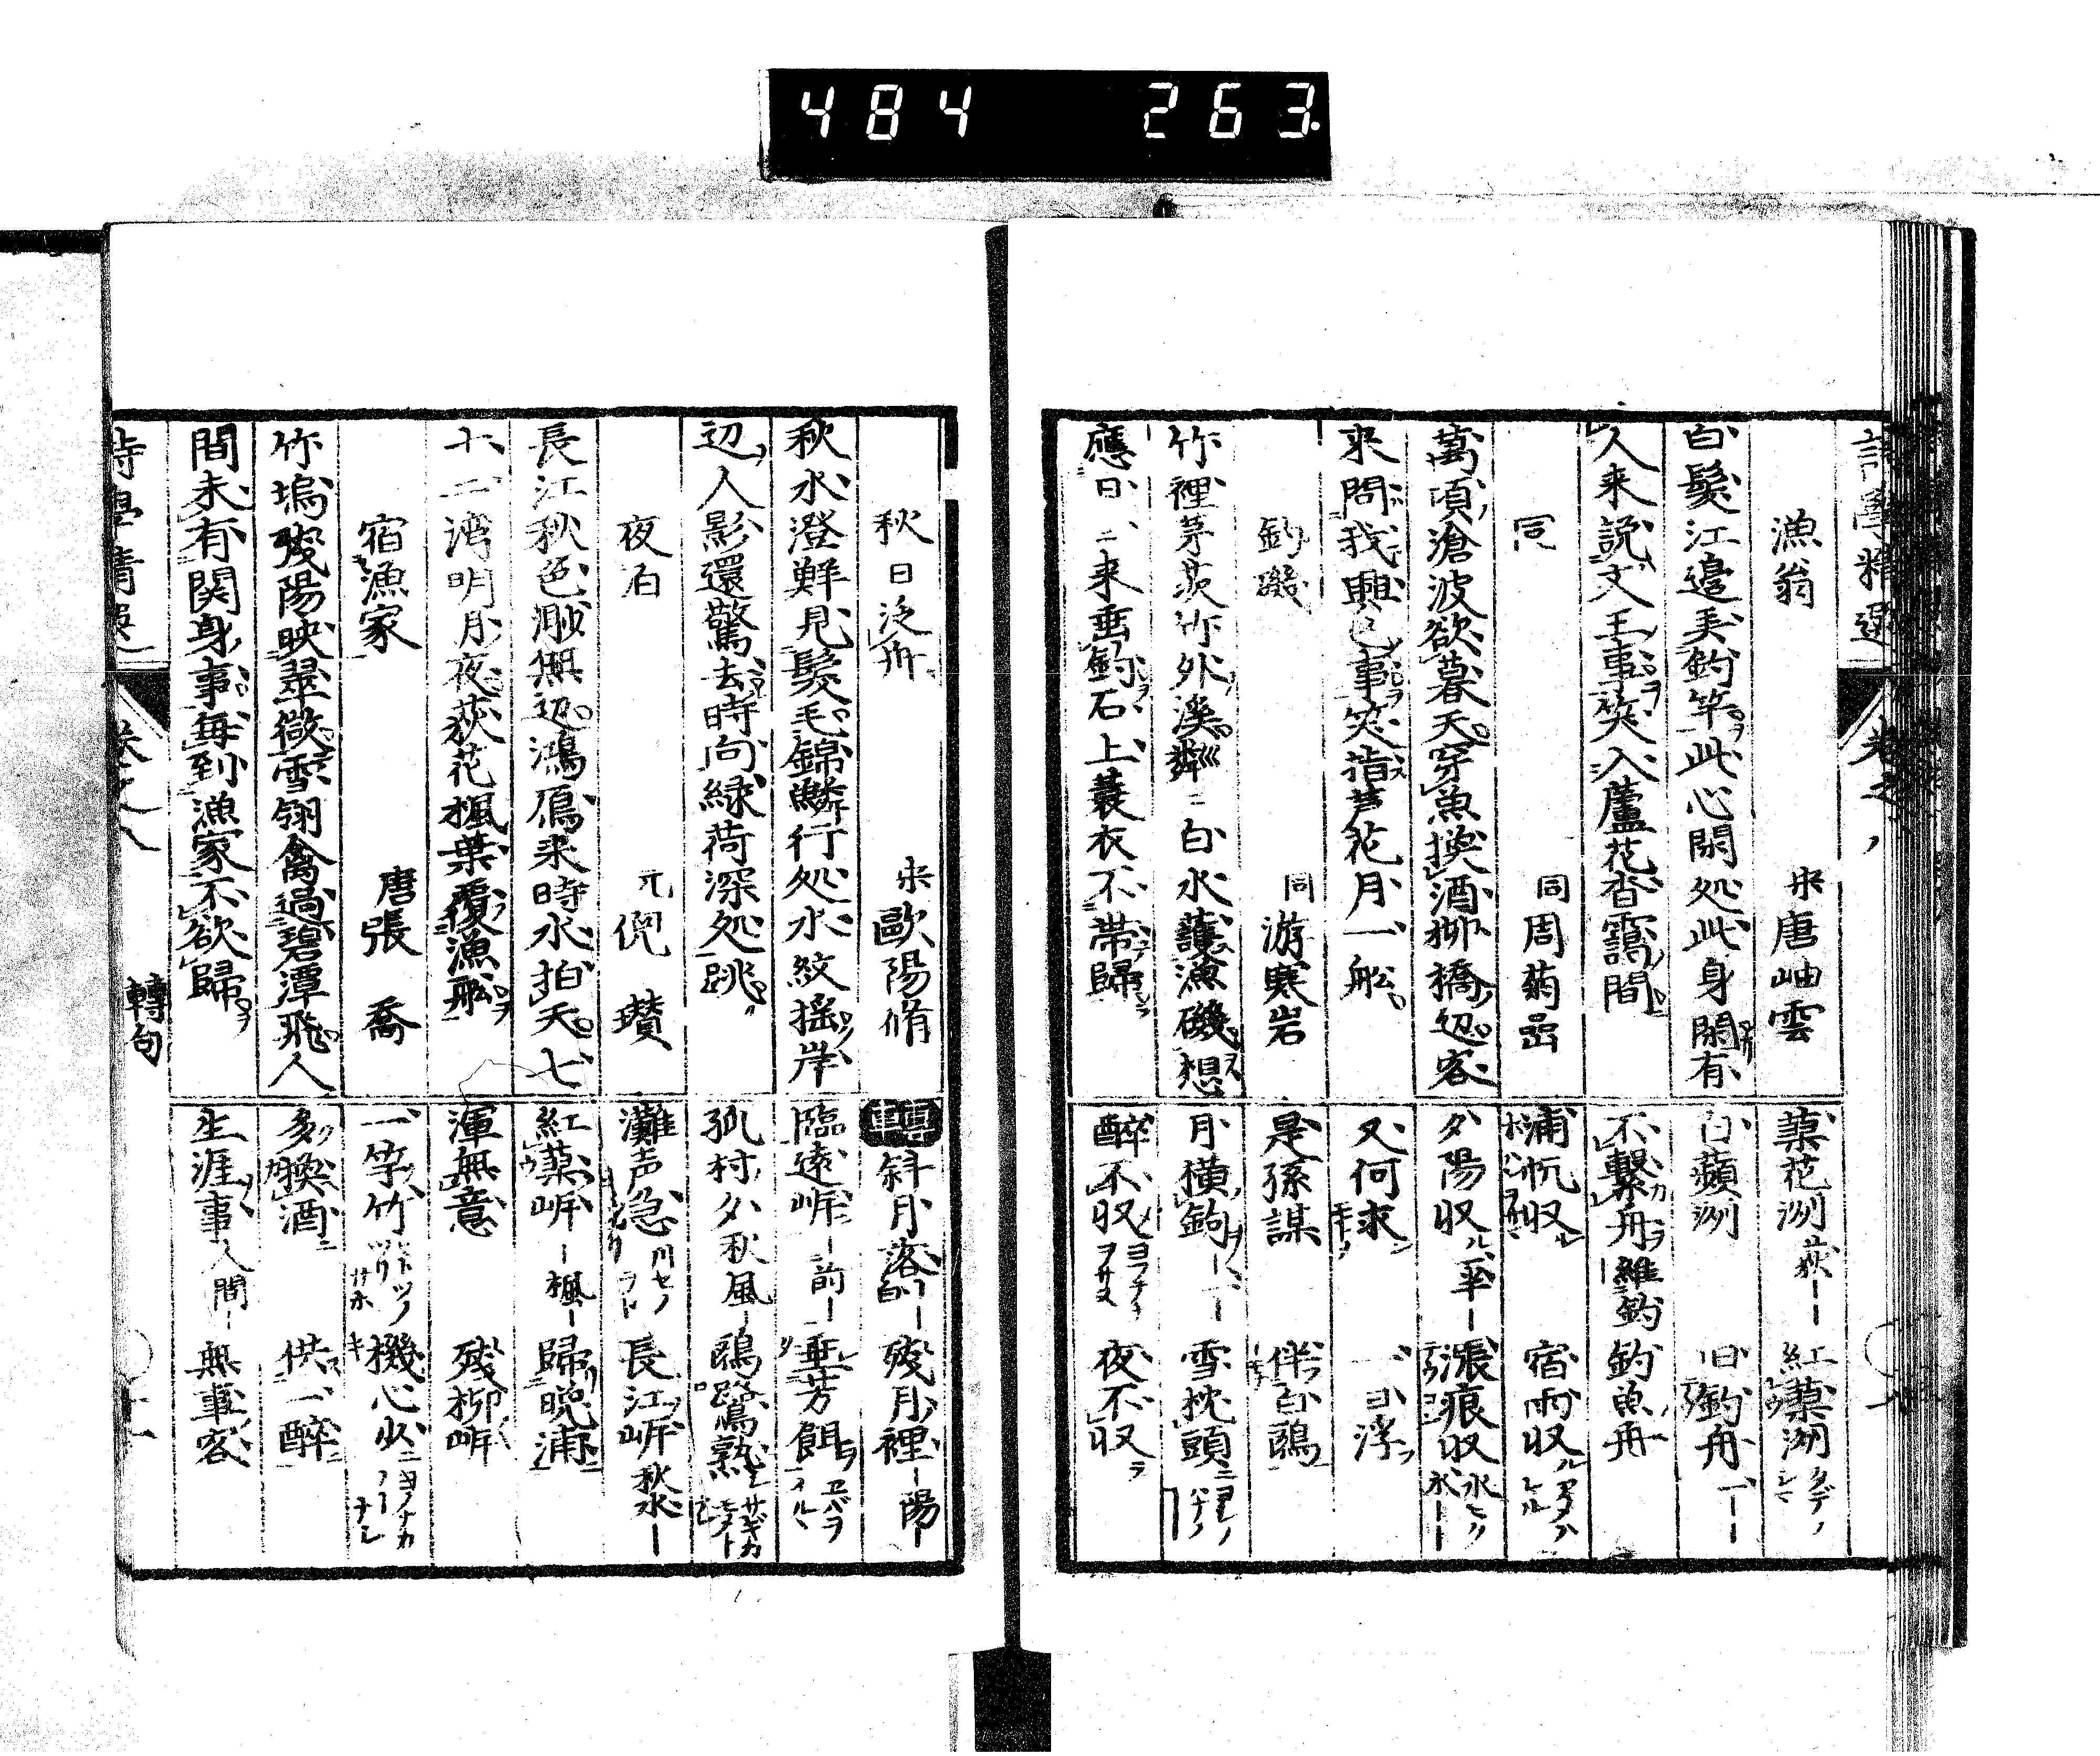 484 263.
漁翁 宋唐岫雲
白髮江邊弄釣竿此心閑処此身閑有
人来説文王事笑入蘆花杳靄間
同 同周菊嵒
萬頃滄波欲暮天穿魚換酒柳橋辺客
来問我興亡事笑指芦花月一舩
釣磯 同游寒岩
竹裡茅茨竹外溪粼〻白水護漁磯想
應日〻来垂釣石上蓑衣不帯歸
蓼花洲荻―― 紅蓼洲
白蘋洲 旧釣舟
不繋舟 釣魚舟
浦帆収 宿雨収
夕陽収 漲痕収
又何求
是孫謀 伴白鷗
月横鉤 雪枕頭
醉不収 夜不収
秋日泛舟 宋歐陽脩
秋水澄鮮見髮毛錦鱗行処水紋摇岸
辺人影還驚去時向緑荷深処跳
夜泊 元倪瓚
長江秋色渺無辺鴻鴈来時水拍天七
十二湾明月夜荻花楓葉覆漁舩
宿漁家 唐張喬
竹塢殘陽映翠微雪翎禽過碧潭飛人
間未有関身事每到漁家不欲歸
斜月落 殘月裡―陽―
臨遠岸―前― 垂芳餌
孤村夕秋風― 鷗鷺熟
灘声急 長江岸秋水―
紅蓼岸―楓― 歸晩浦
渾無意 殘柳岸
一竿竹 機心少
多換酒 供一醉
生涯事人間― 無事客
轉句